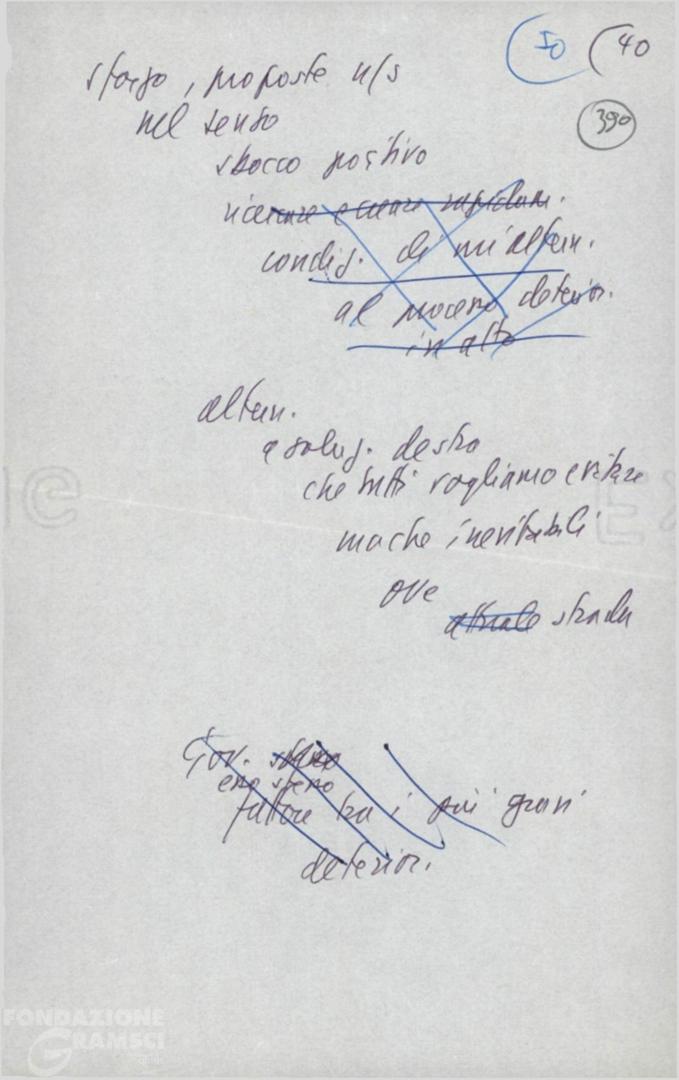 50 (40
390
sforzo, proposte n/s
nel senso
sbocco positivo
ricercare e creare rapidam.
condiz. di un'altern.
al processo deterior.
in alto
altern.
a soluz. destra
che tutti vogliamo evitare
ma che inevitabili
ove
attuale strada
Gov.
esso stesso
fattore tra i più gravi
deterior.
FONDAZIONE
GRAMSCI